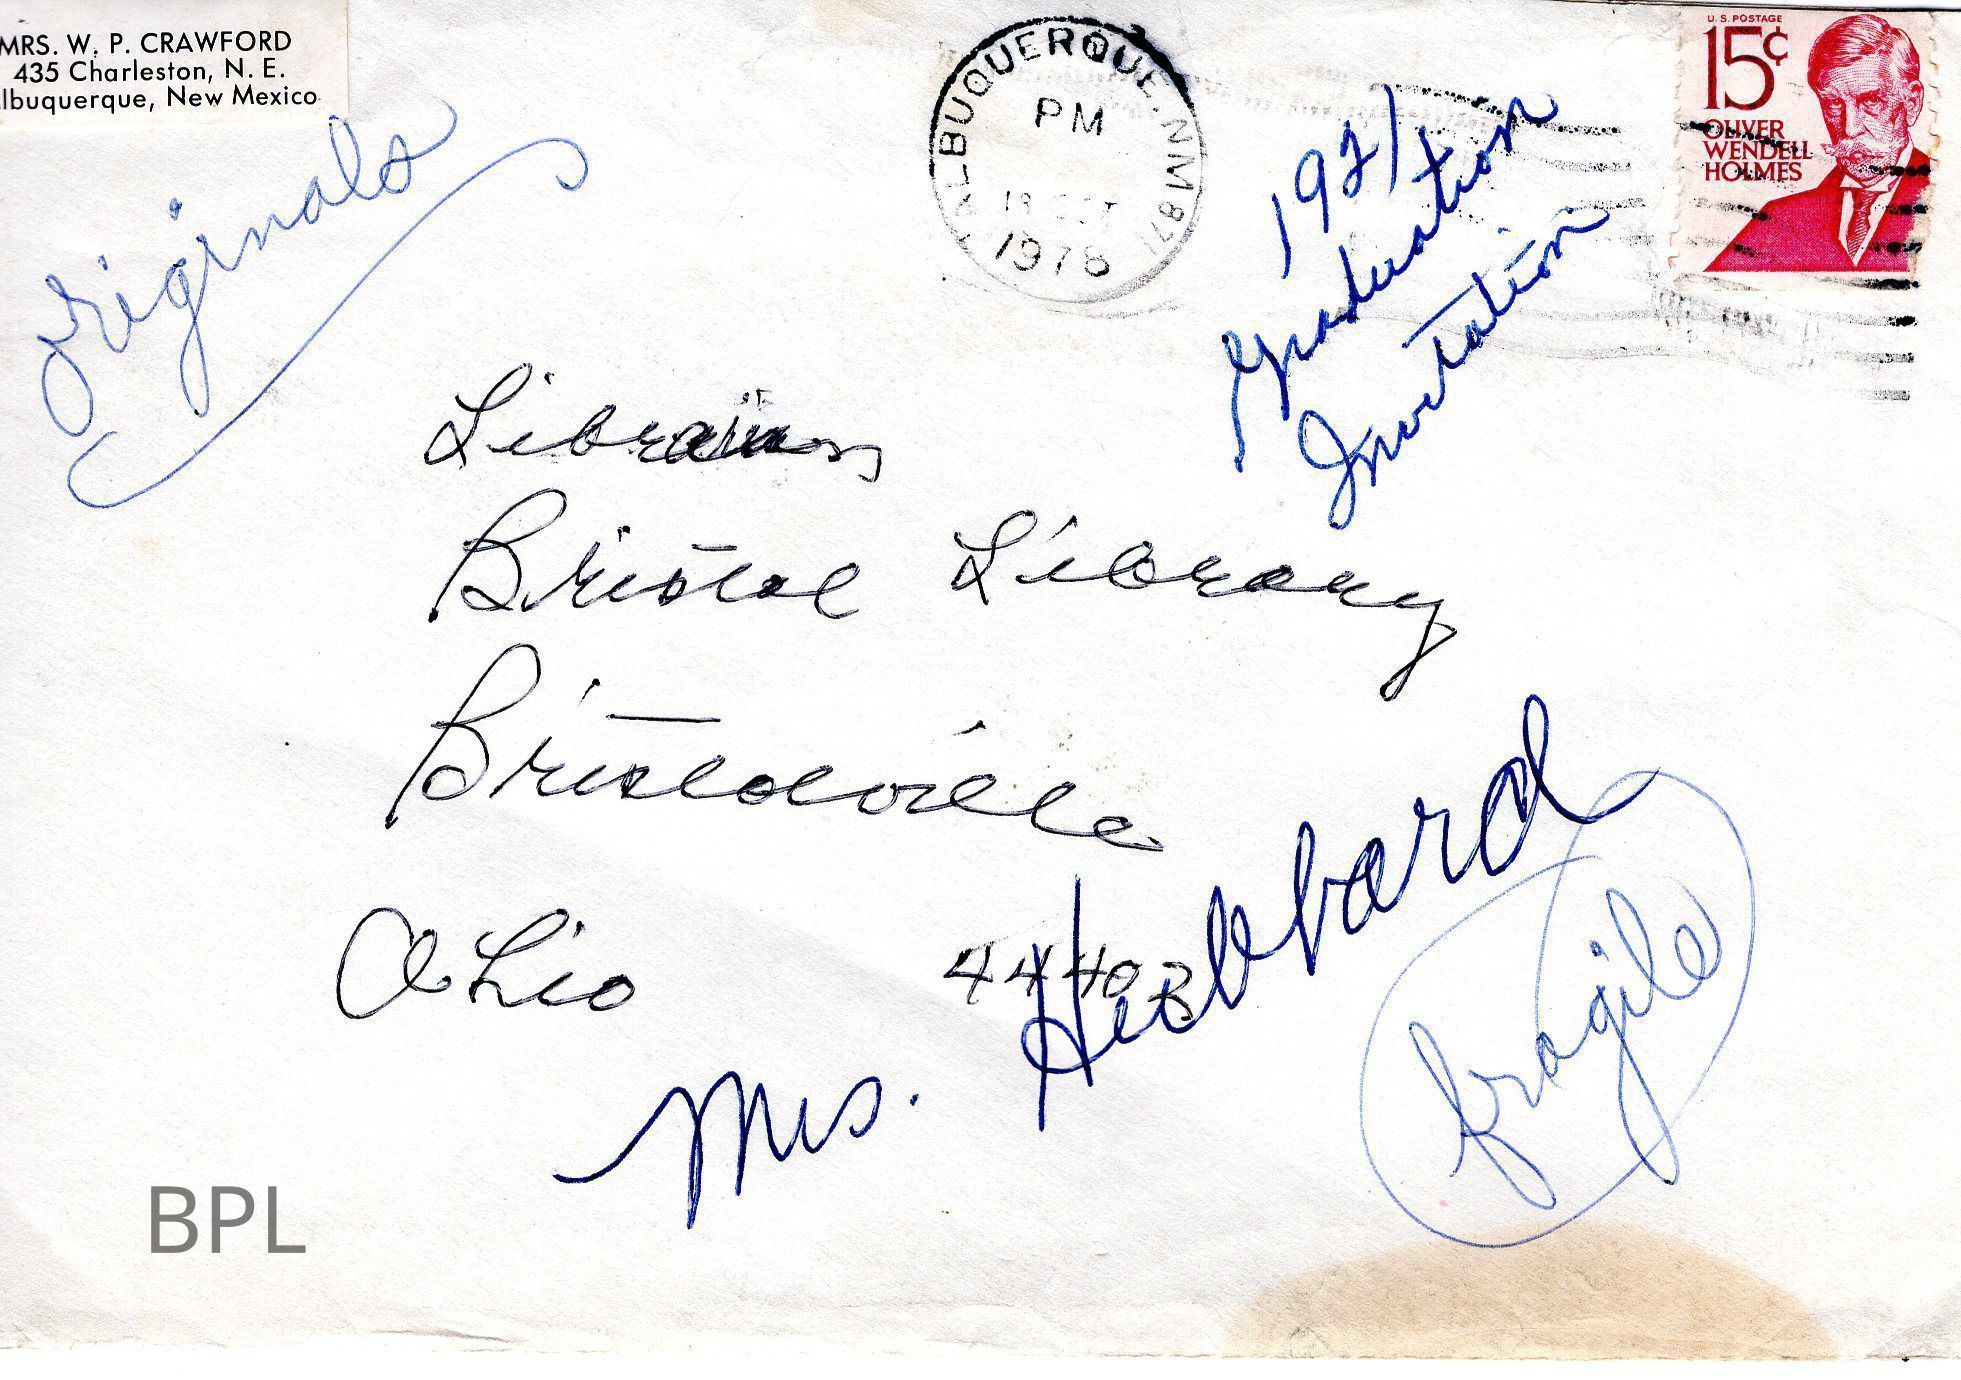 MRS. W. P. CRAWFORD
435 Charleston, N. E.
lbuquerque, New Mexico
originals
ALBUQUERQUE, NM 871
PM
18 OCT
1978
U.S. POSTAGE
15¢
OLIVER
WENDELL
HOLMES
1921
Graduation
Invitation
Librarian
Bristol Library
Bristolville
Ohio 44402
Mrs. Hubbard
fragile
BPL